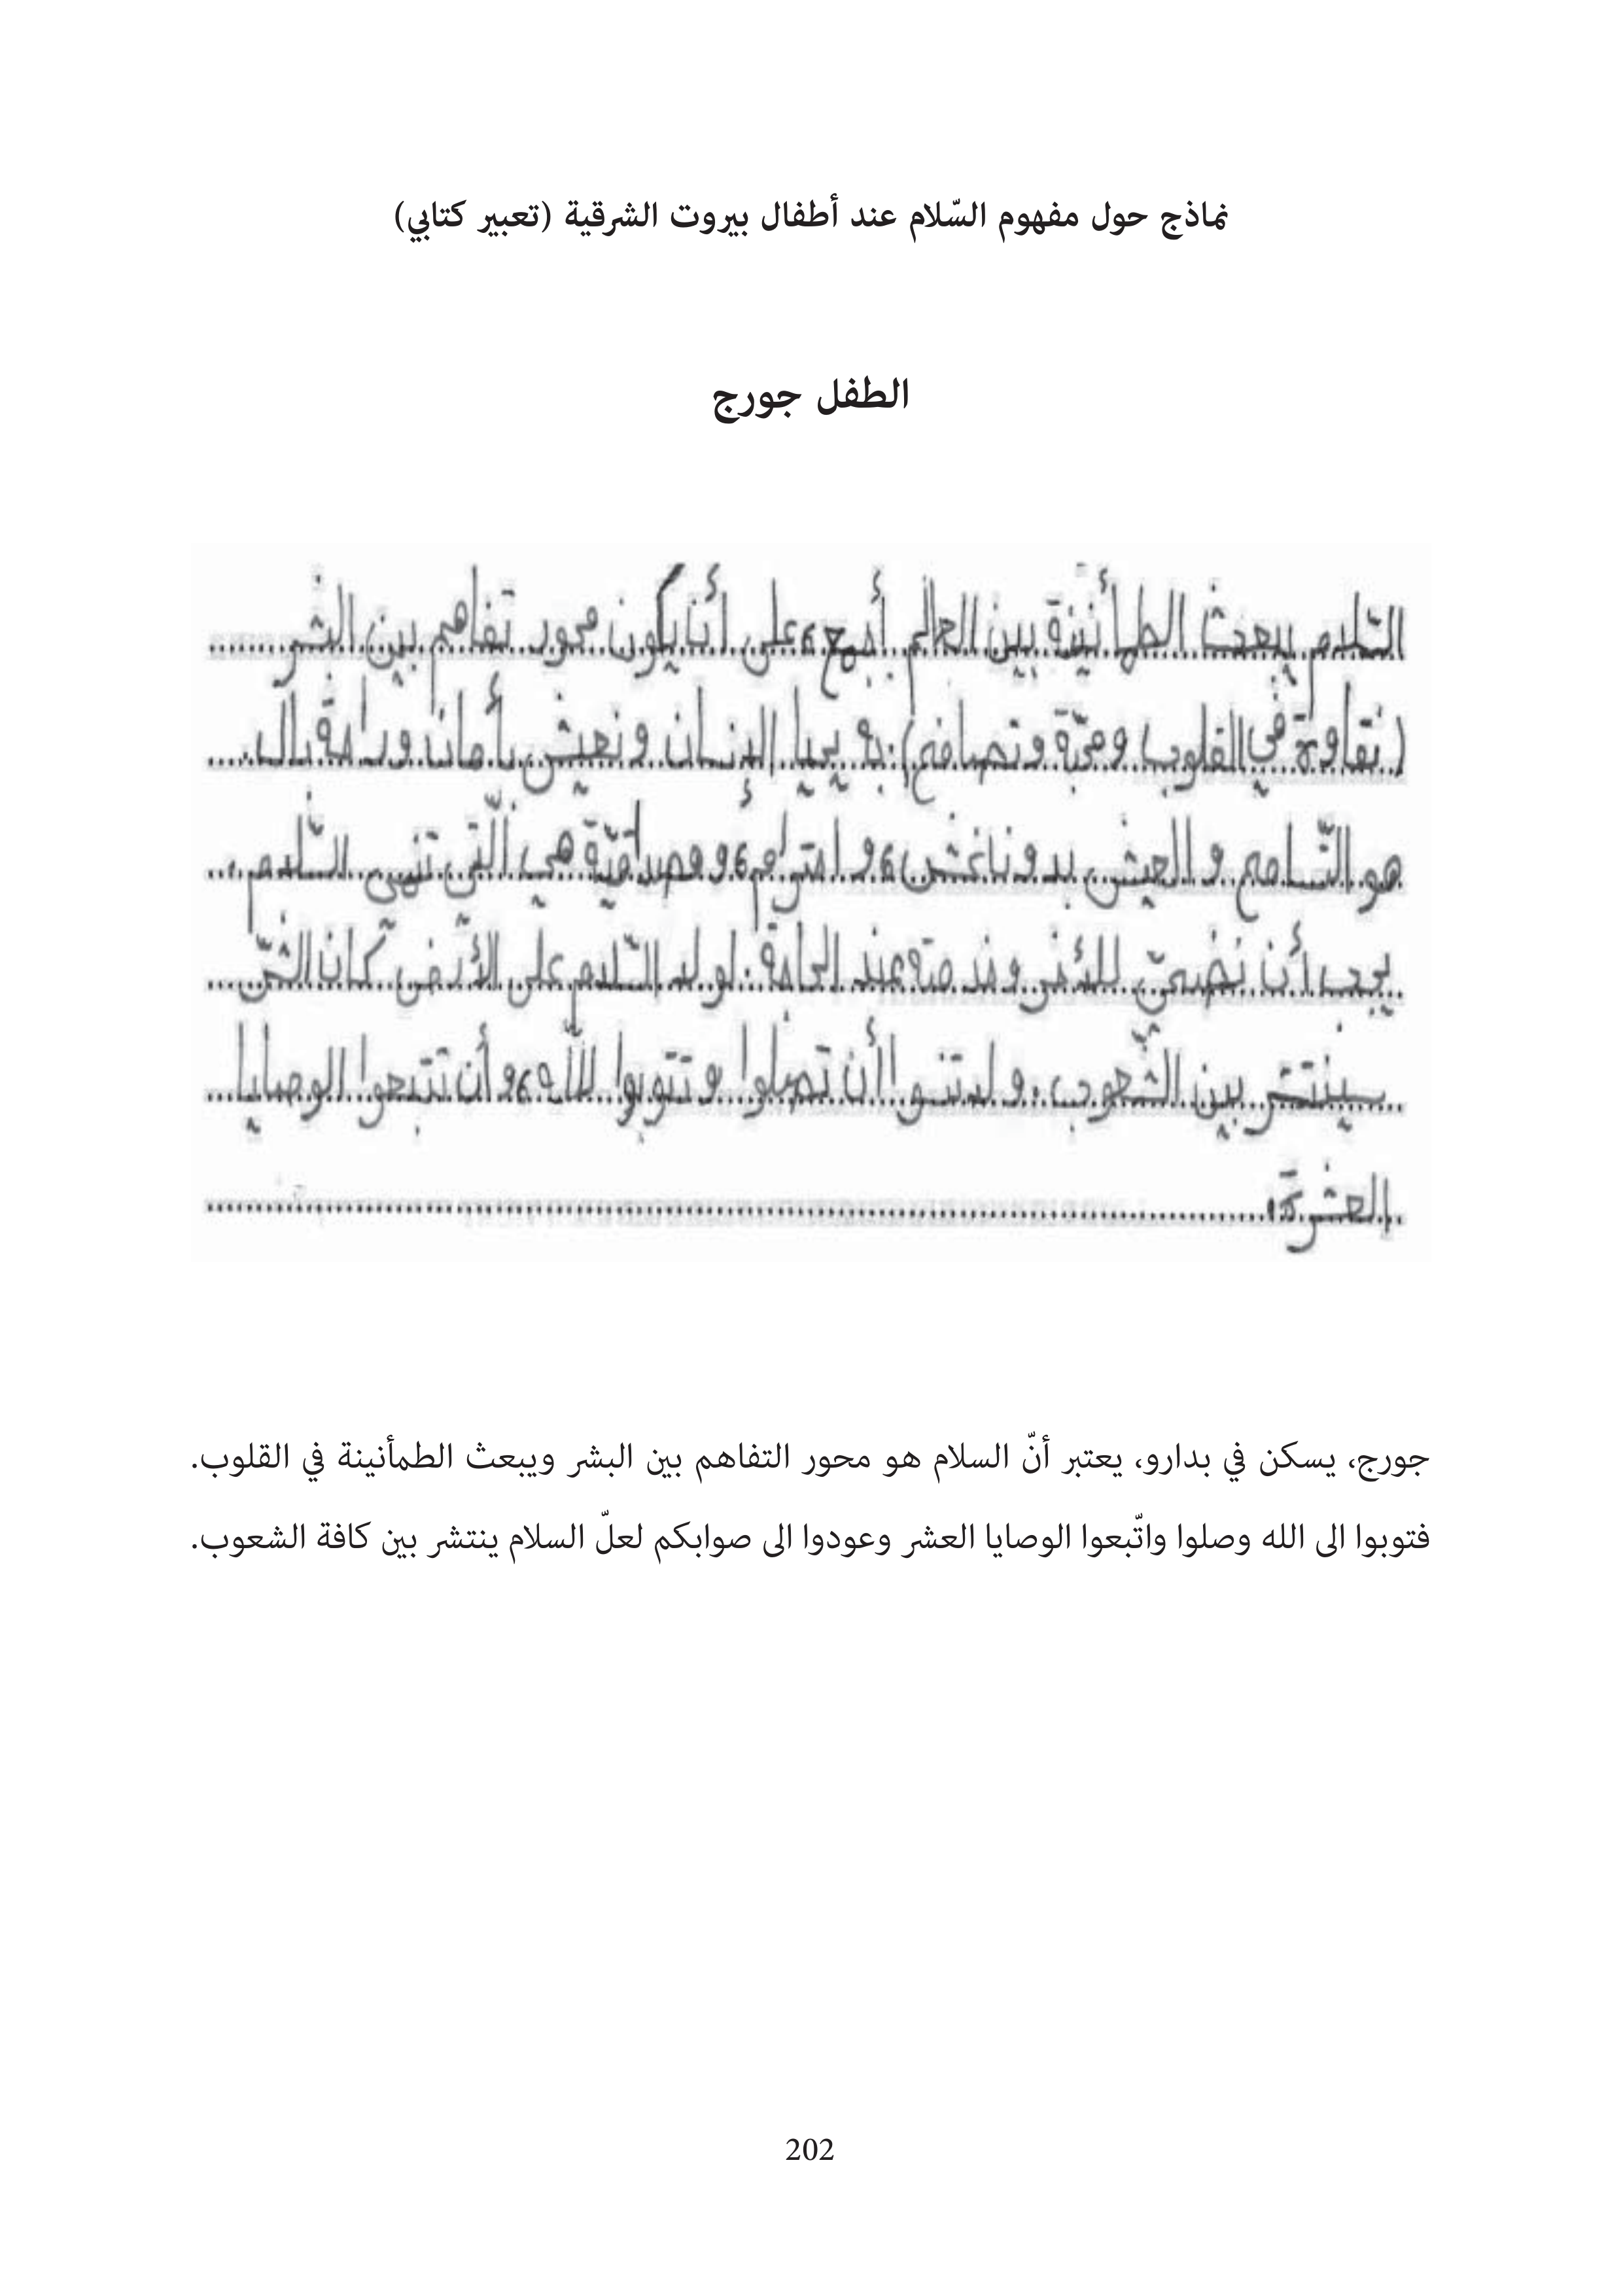 نماذج حول مفهوم السّلام عند أطفال بيروت الشرقية (تعبير كتابي)
الطفل جورج
السّلام يبعث الطمأنينة بين العالم أجمع، على أن يكون محور تفاهم بين البشر
(نقاوة في القلوب ومحبّة وتصافح). به يحيا الإنسان ونعيش بأمان وراحة بال.
هو التّسامح والعيش بدون غش، واحترام، ومصداقيّة هي الّتي تنهي السّلام.
يجب أن نضحّي للأخر وخدمته عند الحاجة. لولا السّلام على الأرض كان الشّر
سينتشر بين الشّعوب. ولا تنسوا أن تصلوا وتتوبوا للّه، وأن تتبعوا الوصايا
العشرة.
جورج، يسكن في بدارو، يعتبر أنّ السلام هو محور التفاهم بين البشر ويبعث الطمأنينة في القلوب.
فتوبوا الى الله وصلوا واتّبعوا الوصايا العشر وعودوا الى صوابكم لعلّ السلام ينتشر بين كافة الشعوب.
202